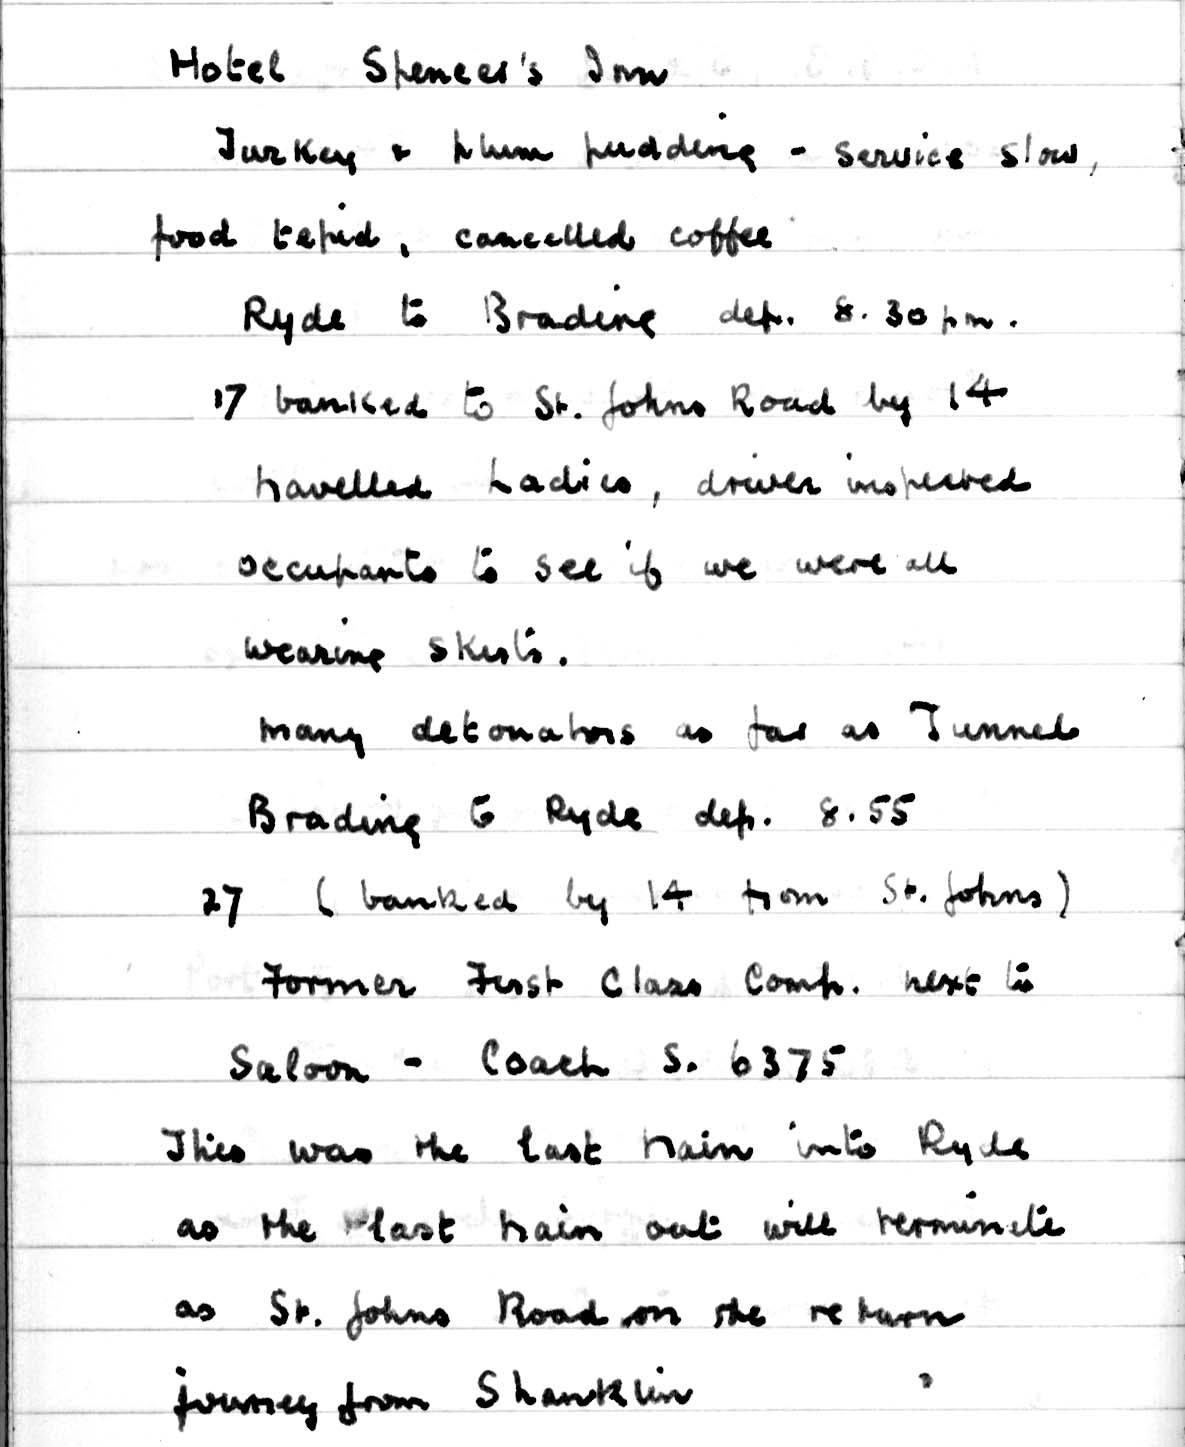 Hotel Spencer's Inn
Turkey & plum pudding - service slow,
food tepid, cancelled coffee
Ryde to Brading dep. 8.30pm.
17 banked to St. Johns Road by 14
travelled Ladies, driver inspected
occupants to see if we were all
wearing skirts.
Many detonators as far as Tunnel
Brading to Ryde dep. 8.55
27 (banked by 14 from St. Johns)
Former First Class Comp. next to
Saloon - Coach S. 6375
This was the last train into Ryde
as the last train out will terminate
as St. Johns Road on the return
journey from Shanklin